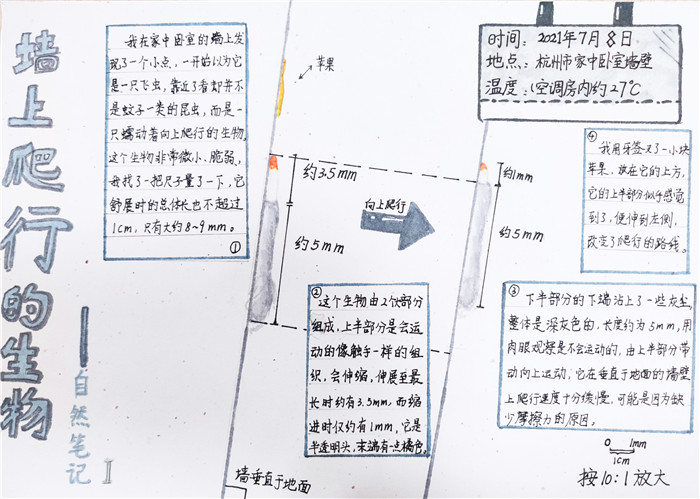 墙上爬行的生物
——自然笔记 I
时间：2021年7月8日
地点：杭州市家中卧室墙壁
温度：（空调房内约27℃
我在家中卧室的墙上发
现了一个小点，一开始以为它
是一只飞虫，靠近了看却并不
是蚊子一类的昆虫，而是一
只蠕动着向上爬行的生物，
这个生物非常微小、脆弱，
我找了一把尺子量了一下，它
舒展时的总体长也不超过
1cm，只有大约8~9mm。
①
苹果
约3.5mm
约5mm
向上爬行
约1mm
约5mm
②这个生物由2个部分
组成，上半部分是会运
动的像触手一样的组
织，会伸缩，伸展至最
长时约有3.5mm，而缩
进时仅约有1mm，它是
半透明头，末端有一点橘色。
④
我用牙签叉了一小块
苹果，放在它的上方，
它的上半部分似乎感觉
到了，便伸到左侧，
改变了爬行的路线。
③下半部分的下端沾上了一些灰尘，
整体是深灰色的，长度约为5mm，用
肉眼观察是不会运动的，由上半部分带
动向上运动，它在垂直于地面的墙壁
上爬行速度十分缓慢，可能是因为缺
少摩擦力的原因。
墙垂直于地面
0 1mm
1cm
按10:1放大